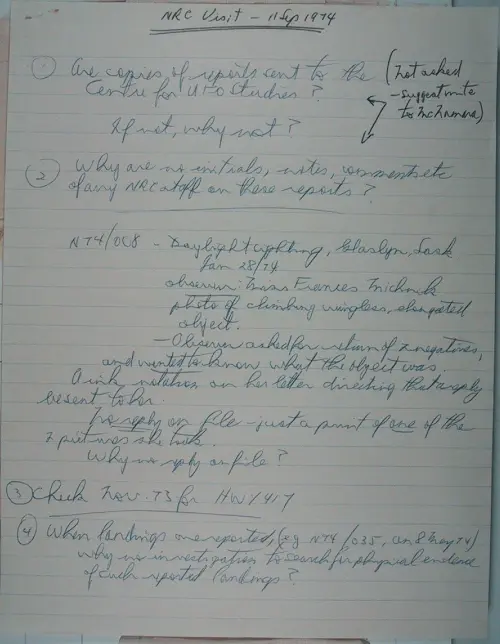 NRC Visit - 11 Sep 1974
① Are copies of reports sent to the
Centre for UFO Studies?
(not asked
- suggest write
to McNamara)
If not, why not?
② Why are no initials, notes, comments etc
of any NRC staff on these reports?
N74/008 - Daylight sighting, Glaslyn, Sask
Jan 28/74
observer: Miss Frances
photo of climbing wingless, elongated
object.
- Observer asked for return of 2 negatives,
and wanted to know what the object was.
A ink notation on her letter directing that a reply
be sent to her.
No reply on file - just a print of one of the
2 pictures she took.
Why no reply on file?
③ Check Nov. 73 for HWY 417
④ When landings are reported, (eg N74/035, on 8 May 74)
why no investigation to search for physical evidence
of such reported landings?